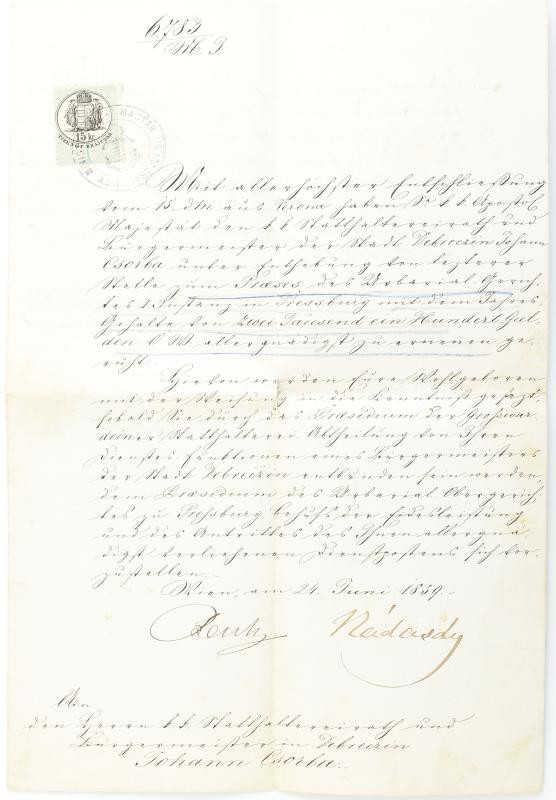 6,783
M. J.
15 k
TIZENÖT KRAJCZÁR
Mit allerhöchster Entschließung
vom 15. dM. aus Verona haben Se k. k. Apostol.
Majestät den k k Statthaltereirath und
Bürgermeister der Stadt Debreczin Johann
Csorba unter Enthebung von lezterer
Stelle zum Præses des Urbarial Gerich-
tes 1. Instanz in Pressburg mit dem Jahres-
Gehalte von Zwei Tausend ein Hundert Gul-
den Ö. W. allergnädigst zu ernennen ge-
ruht.
Hievon werden Eure Wohlgeboren
mit der Weisung in die Kenntniß gesezt,
sobald Sie durch das Præsidium der Großwar-
deiner Statthalterei Abtheilung von Ihren
Dienstes-Funktionen eines Bürgermeisters
der Stadt Debreczin entbunden sein werden,
dem Præsidium des Urbarial Obergerich-
tes zu Preßburg behufs der Eidesleistung
und des Antrittes des Ihnen allergnä-
digst verliehenen Dienstpostens sich vor-
zustellen.
Wien, am 24. Juni 1859.
Nádasdy
An
den Herrn k. k. Statthaltereirath und
Bürgermeister in Debreczin
Johann Csorba.